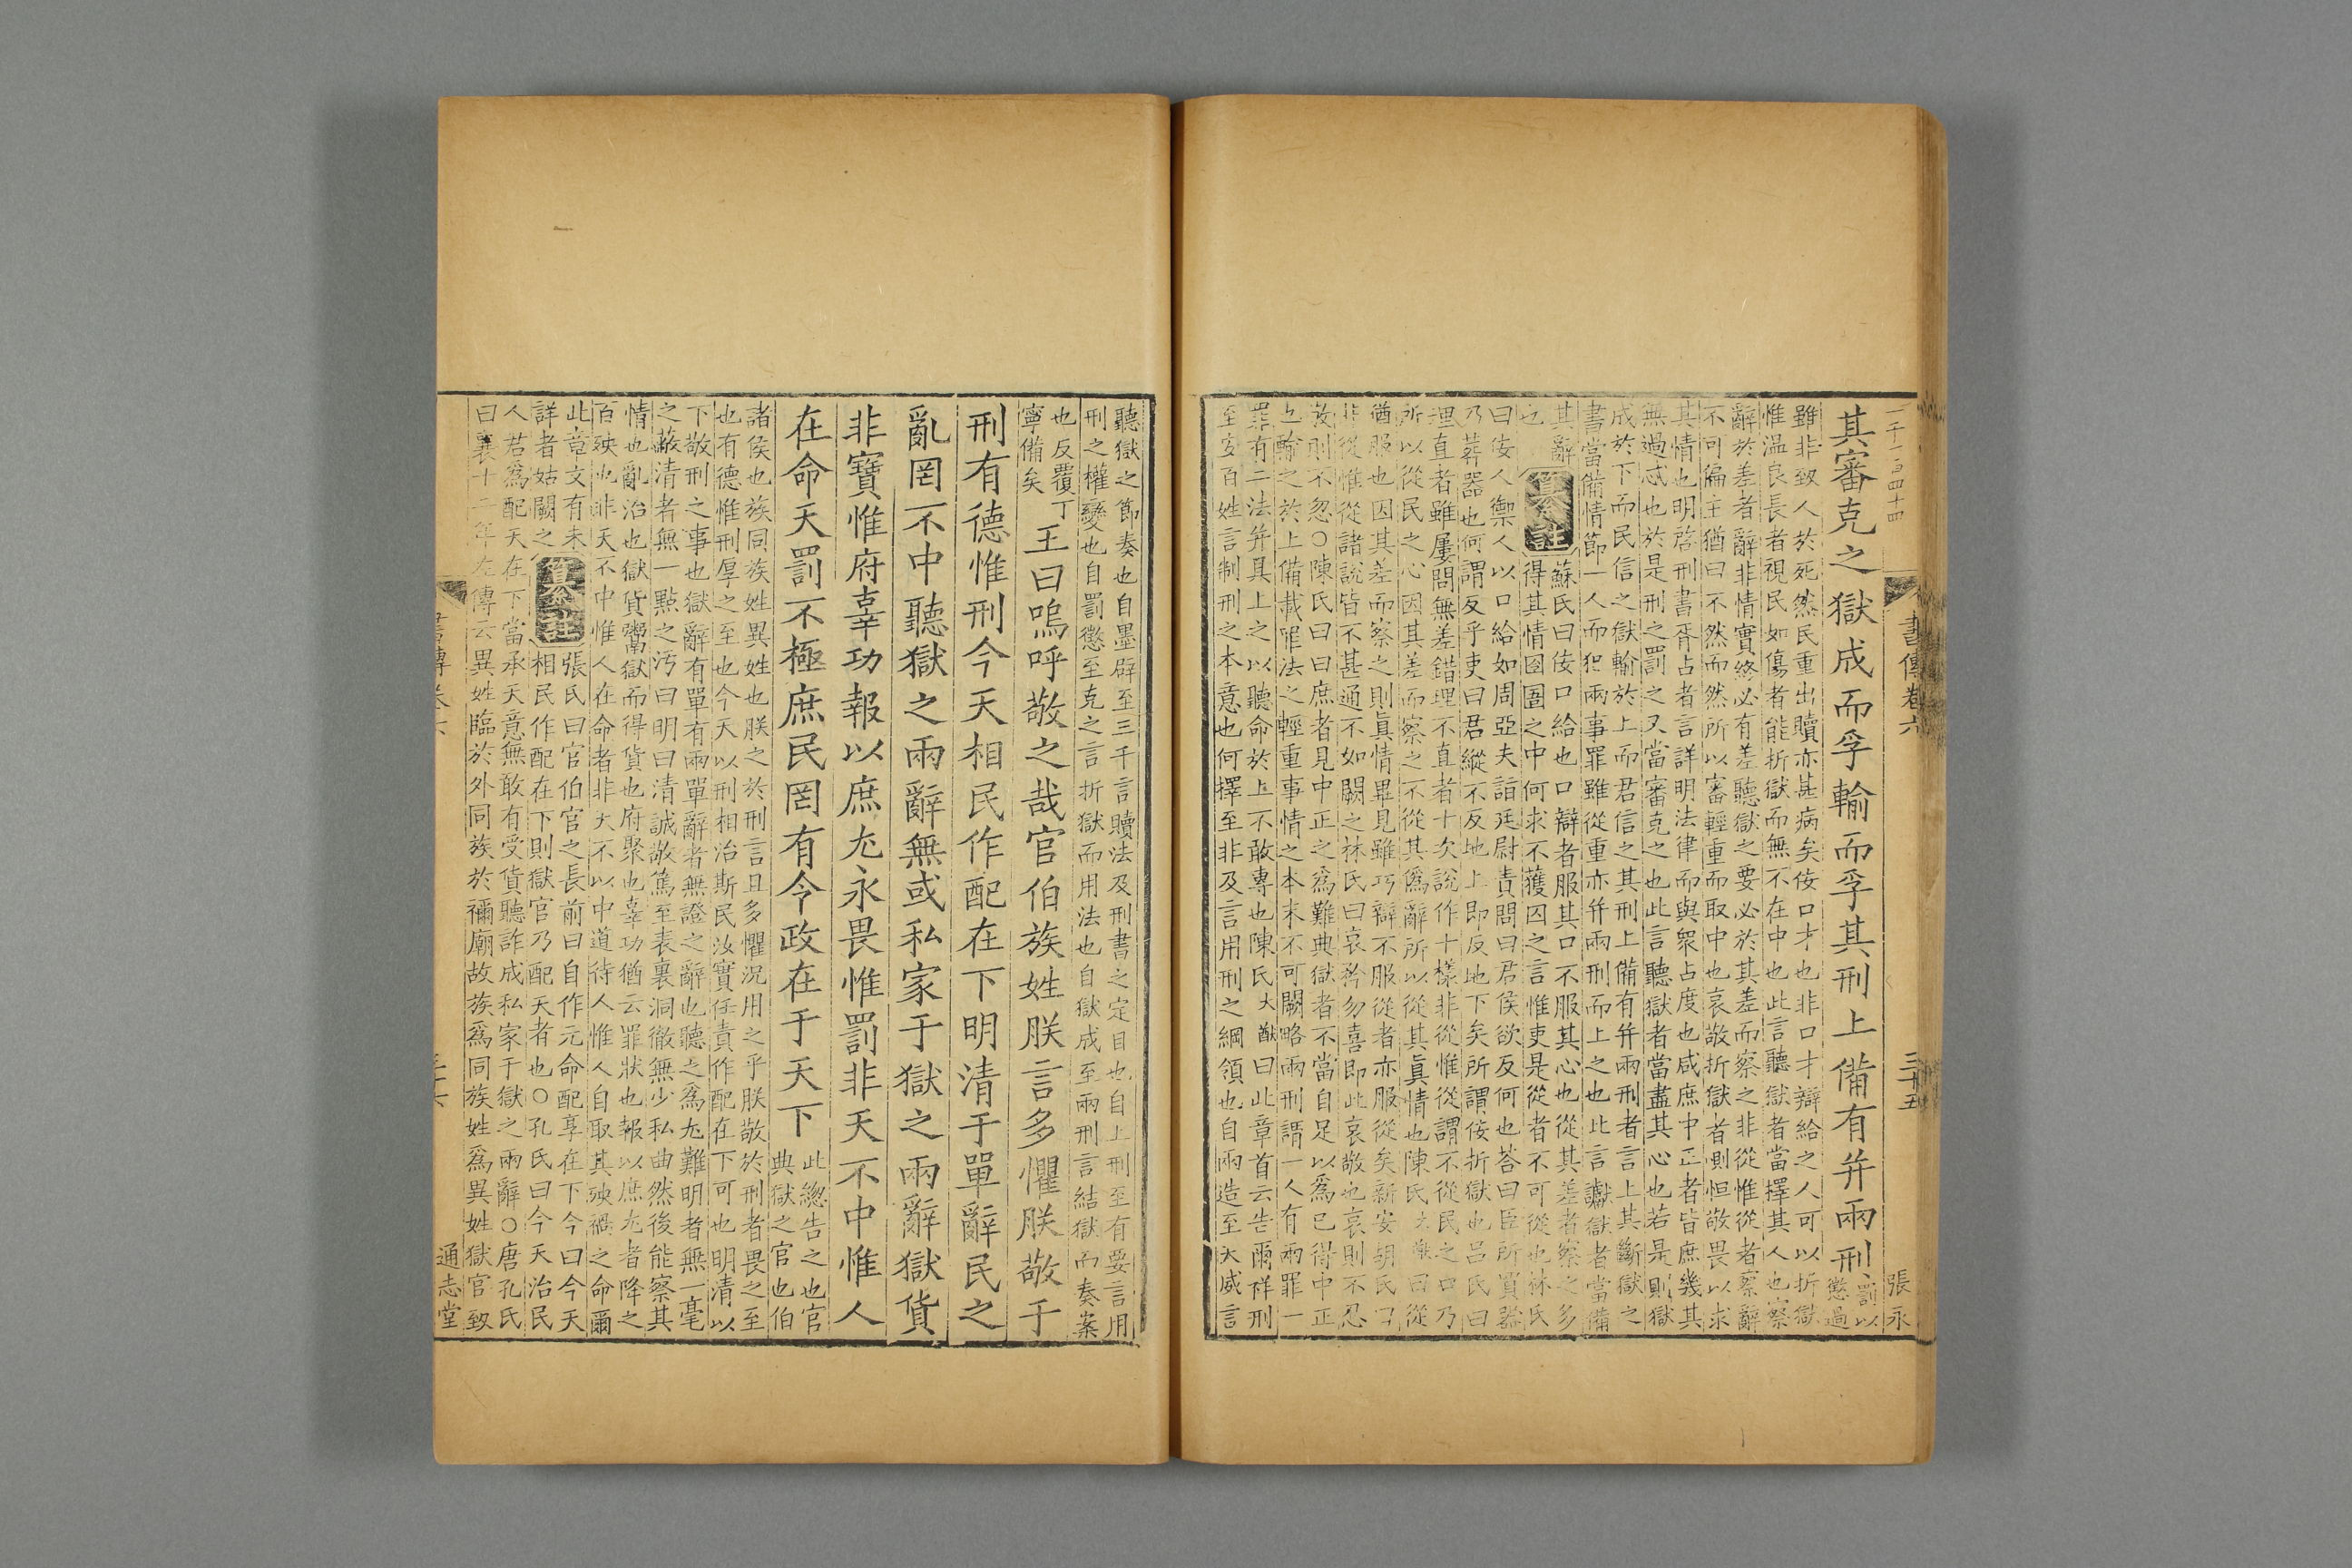 一千一百四十四
書傳卷六
三十五
張永
其審克之獄成而孚輸而孚其刑上備有并兩刑
罰以
懲過
雖非致人於死然民重出贖亦甚病矣佞口才也非口才辯給之人可以折獄
惟温良長者視民如傷者能折獄而無不在中也此言聽獄者當擇其人也察
辭於差者辭非情實終必有差聽獄之要必於其差而察之非從惟從者察辭
不可偏主猶曰不然而然所以審輕重而取中也哀敬折獄者惻怛敬畏以求
其情也明啓刑書胥占者言詳明法律而與衆占度也咸庶中正者皆庶幾其
無過忒也於是刑之罰之又當審克之也此言聽獄者當盡其心也若是則獄
成於下而民信之獄輸於上而君信之其刑上備有并兩刑者言上其斷獄之
書當備情節一人而犯兩事罪雖從重亦并兩刑而上之也此言讞獄者當備
其辭
也
纂註
蘇氏曰佞口給也口辯者服其口不服其心也從其差者察之多
得其情囹圄之中何求不獲囚之言惟吏是從者不可從也林氏
曰佞人禦人以口給如周亞夫詣廷尉責問曰君侯欲反何也荅曰臣所買器
乃葬器也何謂反乎吏曰君縱不反地上即反地下矣所謂佞折獄也呂氏曰
理直者雖屢問無差錯理不直者十次說作十樣非從惟從謂不從民之口乃
所以從民之心因其差而察之不從其僞辭所以從其眞情也陳氏大猷曰從
猶服也因其差而察之則眞情畢見雖巧辯不服從者亦服從矣新安胡氏曰
非從惟從諸說皆不甚通不如闕之林氏曰哀矜勿喜即此哀敬也哀則不忍
敬則不忽○陳氏曰曰庶者見中正之爲難典獄者不當自足以爲已得中正
也輸之於上備載罪法之輕重事情之本末不可闕略兩刑謂一人有兩罪一
罪有二法并具上之以聽命於上不敢專也陳氏大猷曰此章首云告爾祥刑
至安百姓言制刑之本意也何擇至非及言用刑之綱領也自兩造至天威言
聽獄之節奏也自墨辟至三千言贖法及刑書之定目也自上刑至有要言用
刑之權變也自罰懲至克之言折獄而用法也自獄成至兩刑言結獄而奏案
也反覆丁
寧備矣
王曰嗚呼敬之哉官伯族姓朕言多懼朕敬于
刑有德惟刑今天相民作配在下明清于單辭民之
亂罔不中聽獄之兩辭無或私家于獄之兩辭獄貨
非寶惟府辜功報以庶尤永畏惟罰非天不中惟人
在命天罰不極庶民罔有令政在于天下
此緫告之也官
典獄之官也伯
諸侯也族同族姓異姓也朕之於刑言且多懼況用之乎朕敬於刑者畏之至
也有德惟刑厚之至也今天以刑相治斯民汝實任責作配在下可也明清以
下敬刑之事也獄辭有單有兩單辭者無證之辭也聽之爲尤難明者無一毫
之蔽清者無一點之污曰明曰清誠敬篤至表裏洞徹無少私曲然後能察其
情也亂治也獄貨鬻獄而得貨也府聚也辜功猶云罪狀也報以庶尤者降之
百殃也非天不中惟人在命者非天不以中道待人惟人自取其殃禍之命爾
此章文有未
詳者姑闕之
纂註
張氏曰官伯官之長前曰自作元命配享在下今曰今天
相民作配在下則獄官乃配天者也○孔氏曰今天治民
人君爲配天在下當承天意無敢有受貨聽詐成私家于獄之兩辭○唐孔氏
曰襄十二年左傳云異姓臨於外同族於禰廟故族爲同族姓爲異姓獄官致
書傳卷六
通志堂